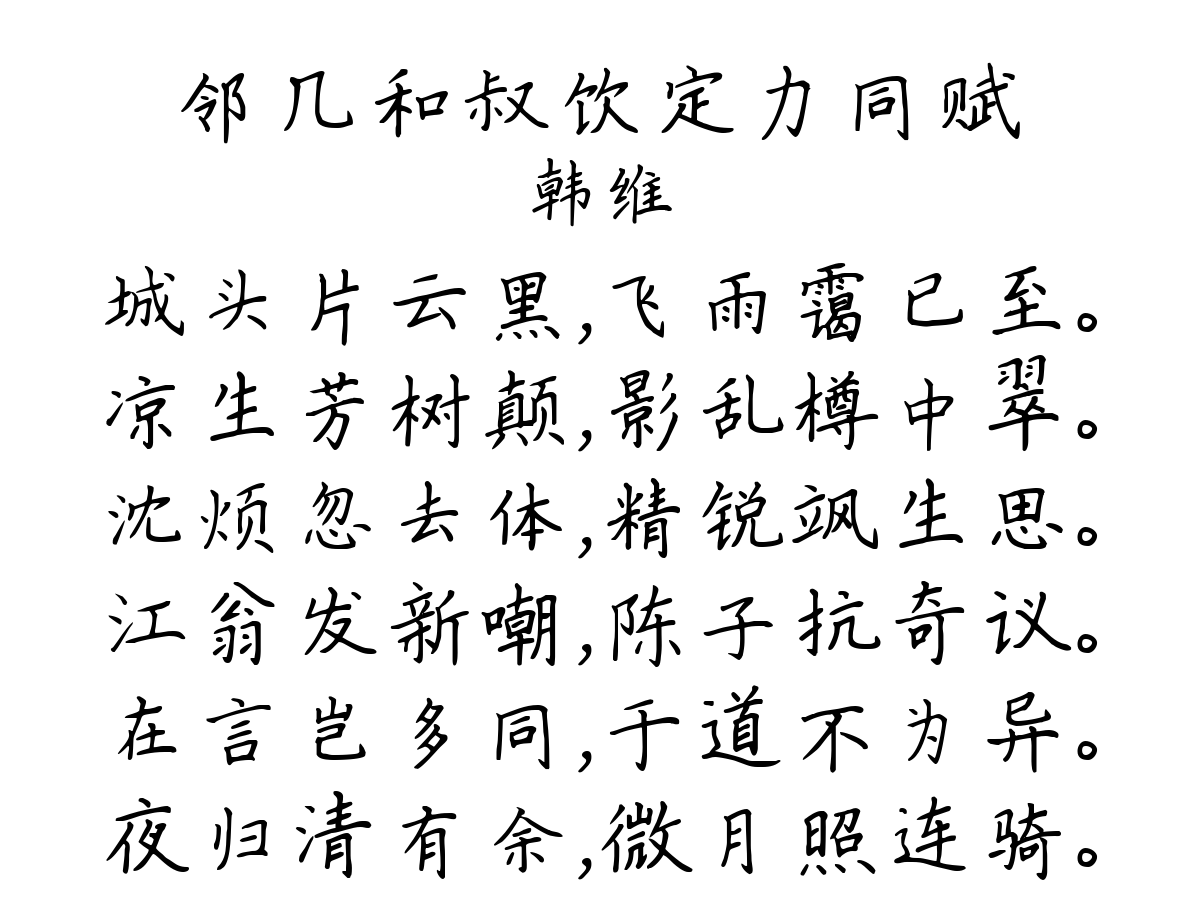 邻几和叔饮定力同赋
韩维
城头片云黑,飞雨霭已至。
凉生芳树颠,影乱樽中翠。
沈烦忽去体,精锐飒生思。
江翁发新嘲,陈子抗奇议。
在言岂多同,于道不为异。
夜归清有余,微月照连骑。